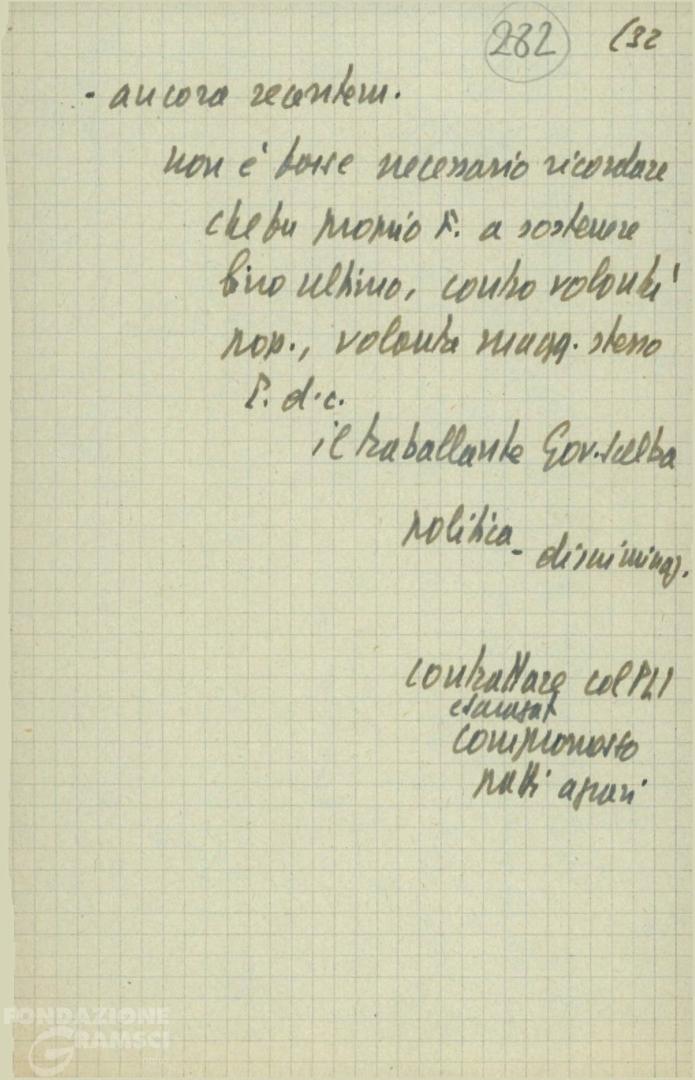 282 (32
- ancora recentem.
non è forse necessario ricordare
che fu proprio F. a sostenere
fino ultimo, contro volontà
pop., volontà magg. stesso
P. d.c.
il traballante Gov. Scelba
politica - discriminaz.
contrattare col PLI
compromesso
patti agrari
FONDAZIONE
GRAMSCI